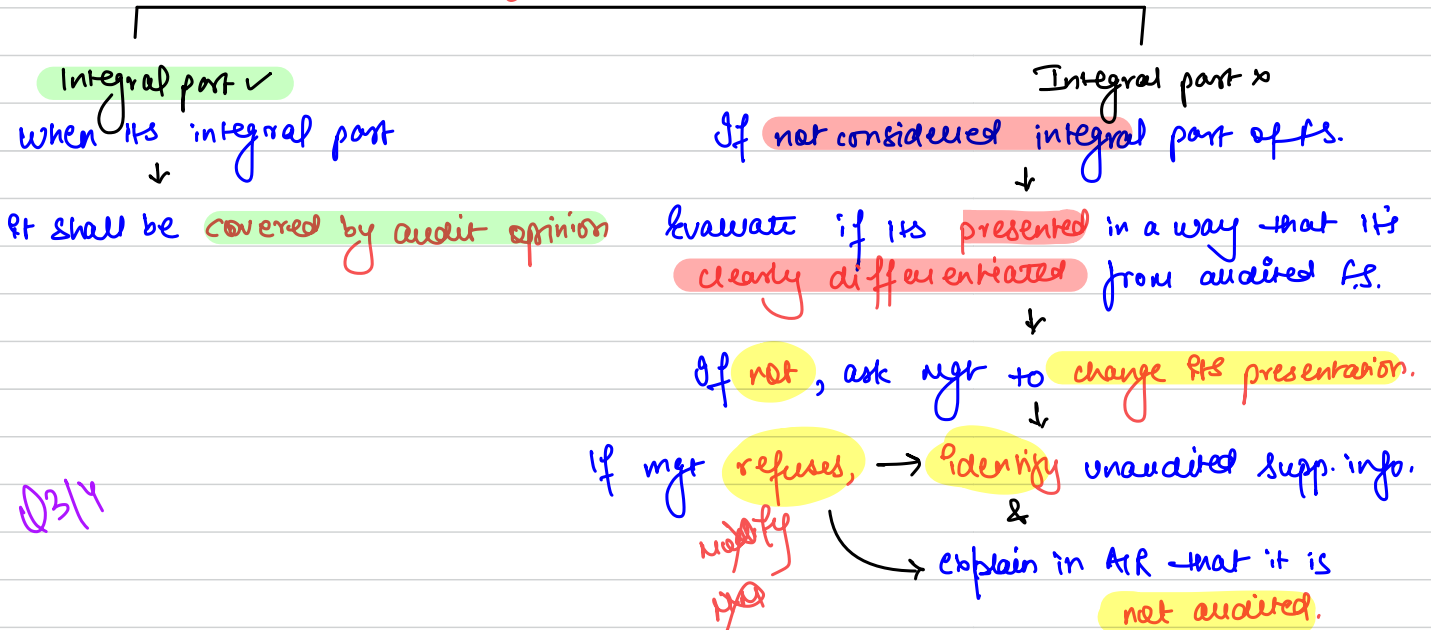 Integral part ✓
When its integral part
↓
it shall be covered by audit opinion
Integral part ×
If not considered integral part of fs.
↓
Evaluate if its presented in a way that it's
clearly differentiated from audited f.s.
↓
If not, ask mgt to change its presentation.
↓
If mgt refuses, → identify unaudited supp. info.
&
explain in AR that it is
not audited.
modify
Q3/4